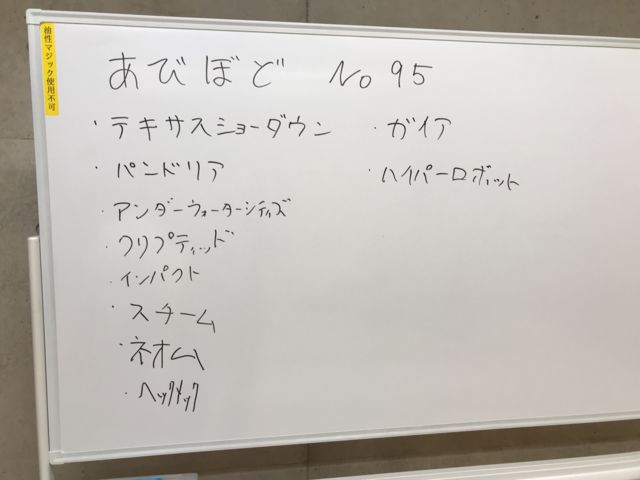 油性マジック使用不可
あびぼど No 95
・テキサスショーダウン
・パンドリア
・アンダーウォーターシティズ
・クリプティッド
・インパクト
・スチーム
・ネオム
・ヘックメック
・ガイア
・ハイパーロボット